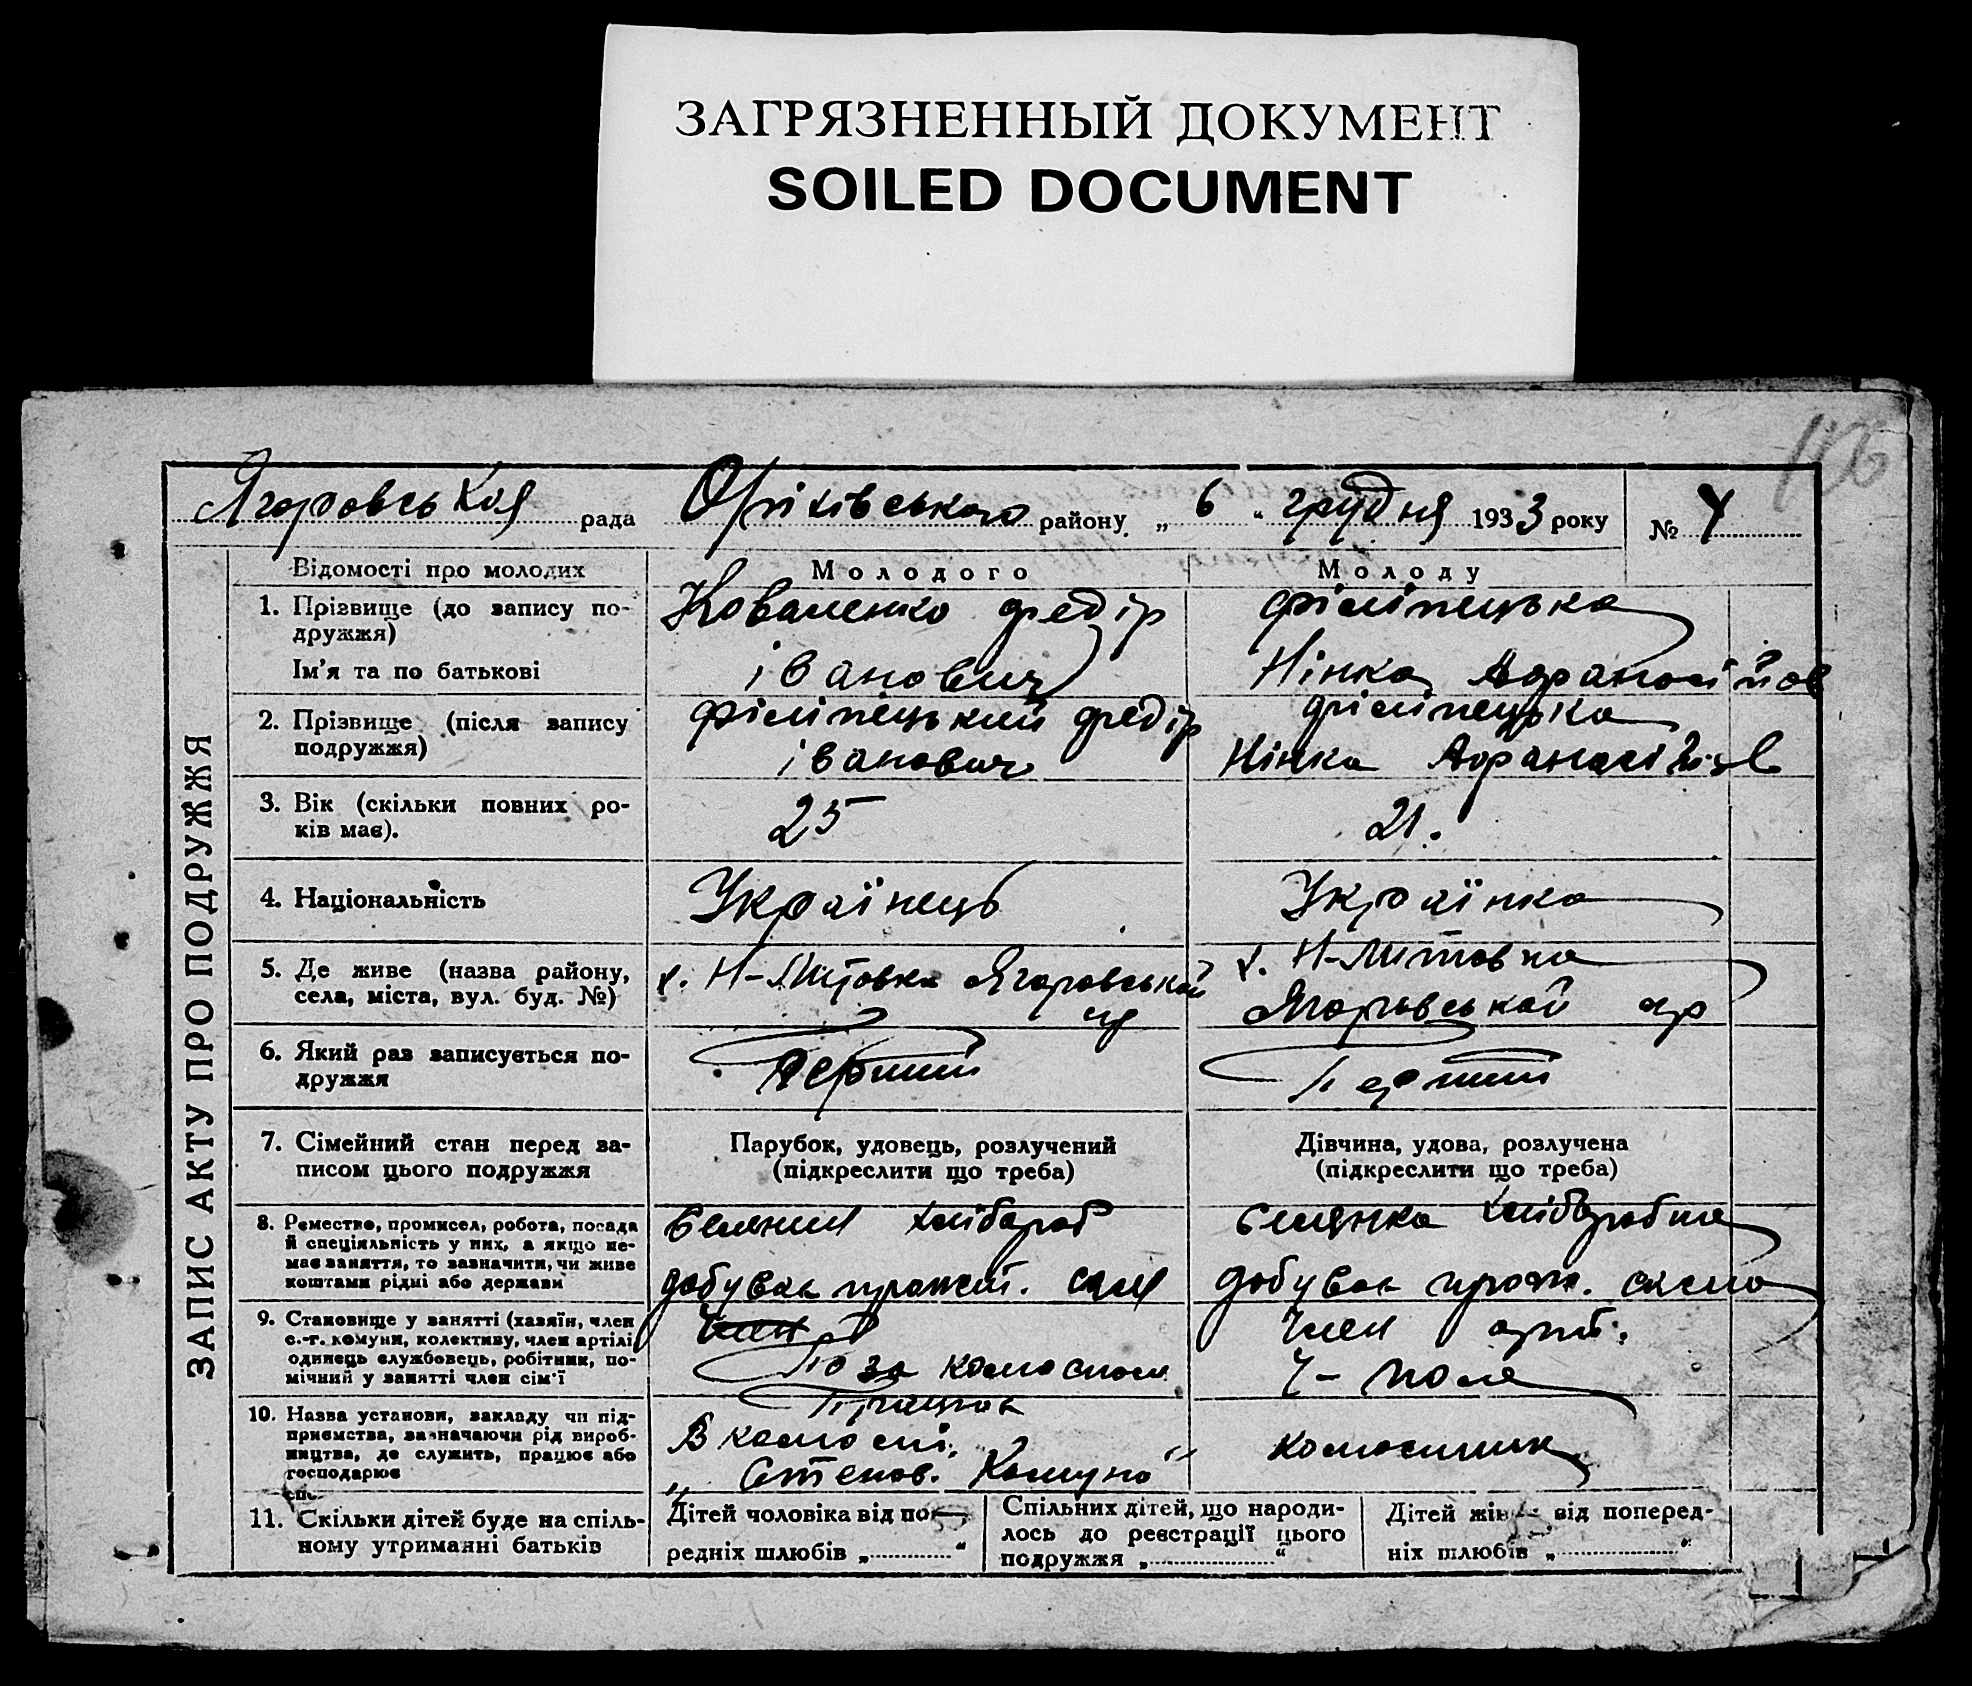 ЗАГРЯЗНЕННЫЙ ДОКУМЕНТ
SOILED DOCUMENT
Ягоровськоя рада Оріхівського району „ 6 “ грудня 1933 року № 4
ЗАПИС АКТУ ПРО ПОДРУЖЖЯ
Відомості про молодих
Молодого
Молоду
1. Прізвище (до запису по-
дружжя)
Ім'я та по батькові
Коваленко Федір
іванович
Філіпецька
Нінка
2. Прізвище (після запису
подружжя)
Філіпецький Федір
іванович
Філіпецька
Нінка
3. Вік (скільки повних ро-
ків має).
25
21.
4. Національність
Українець
Українка
5. Де живе (назва району,
села, міста, вул. буд. №)
х. Н-Литовка Ягоровськой
х. Н-Литовка
Ягоровськой
6. Який раз записується по-
дружжя
Первий
Первий
7. Сімейний стан перед за-
писом цього подружжя
Парубок, удовець, розлучений
(підкреслити що треба)
Дівчина, удова, розлучена
(підкреслити що треба)
8. Ремество, промисел, робота, посада
й спеціяльність у них, а якщо не-
має заняття, то зазначити, чи живе
коштами рідні або держави
Селянин хлібороб
добував прожит. сам
Селянка хлібаробка
добував прож. сама
9. Становище у занятті (хазяїн, член
с.-г. комуни, колективу, член артілі,
одинець службовець, робітник, по-
мічний у занятті член сім'ї
Член
Поза колгоспом
Член арт.
10. Назва установи, закладу чи під-
приємства, зазначаючи рід вироб-
ництва, де служить, працює або
господарює
Працюв
В колгоспі.
„ Степов. Комуна “
11. Скільки дітей буде на спіль-
ному утриманні батьків
Дітей чоловіка від по-
редніх шлюбів „ “
Спільних дітей, що народи-
лось до реєстрації цього
подружжя „ “
Дітей жін від поперед-
ніх шлюбів „ “